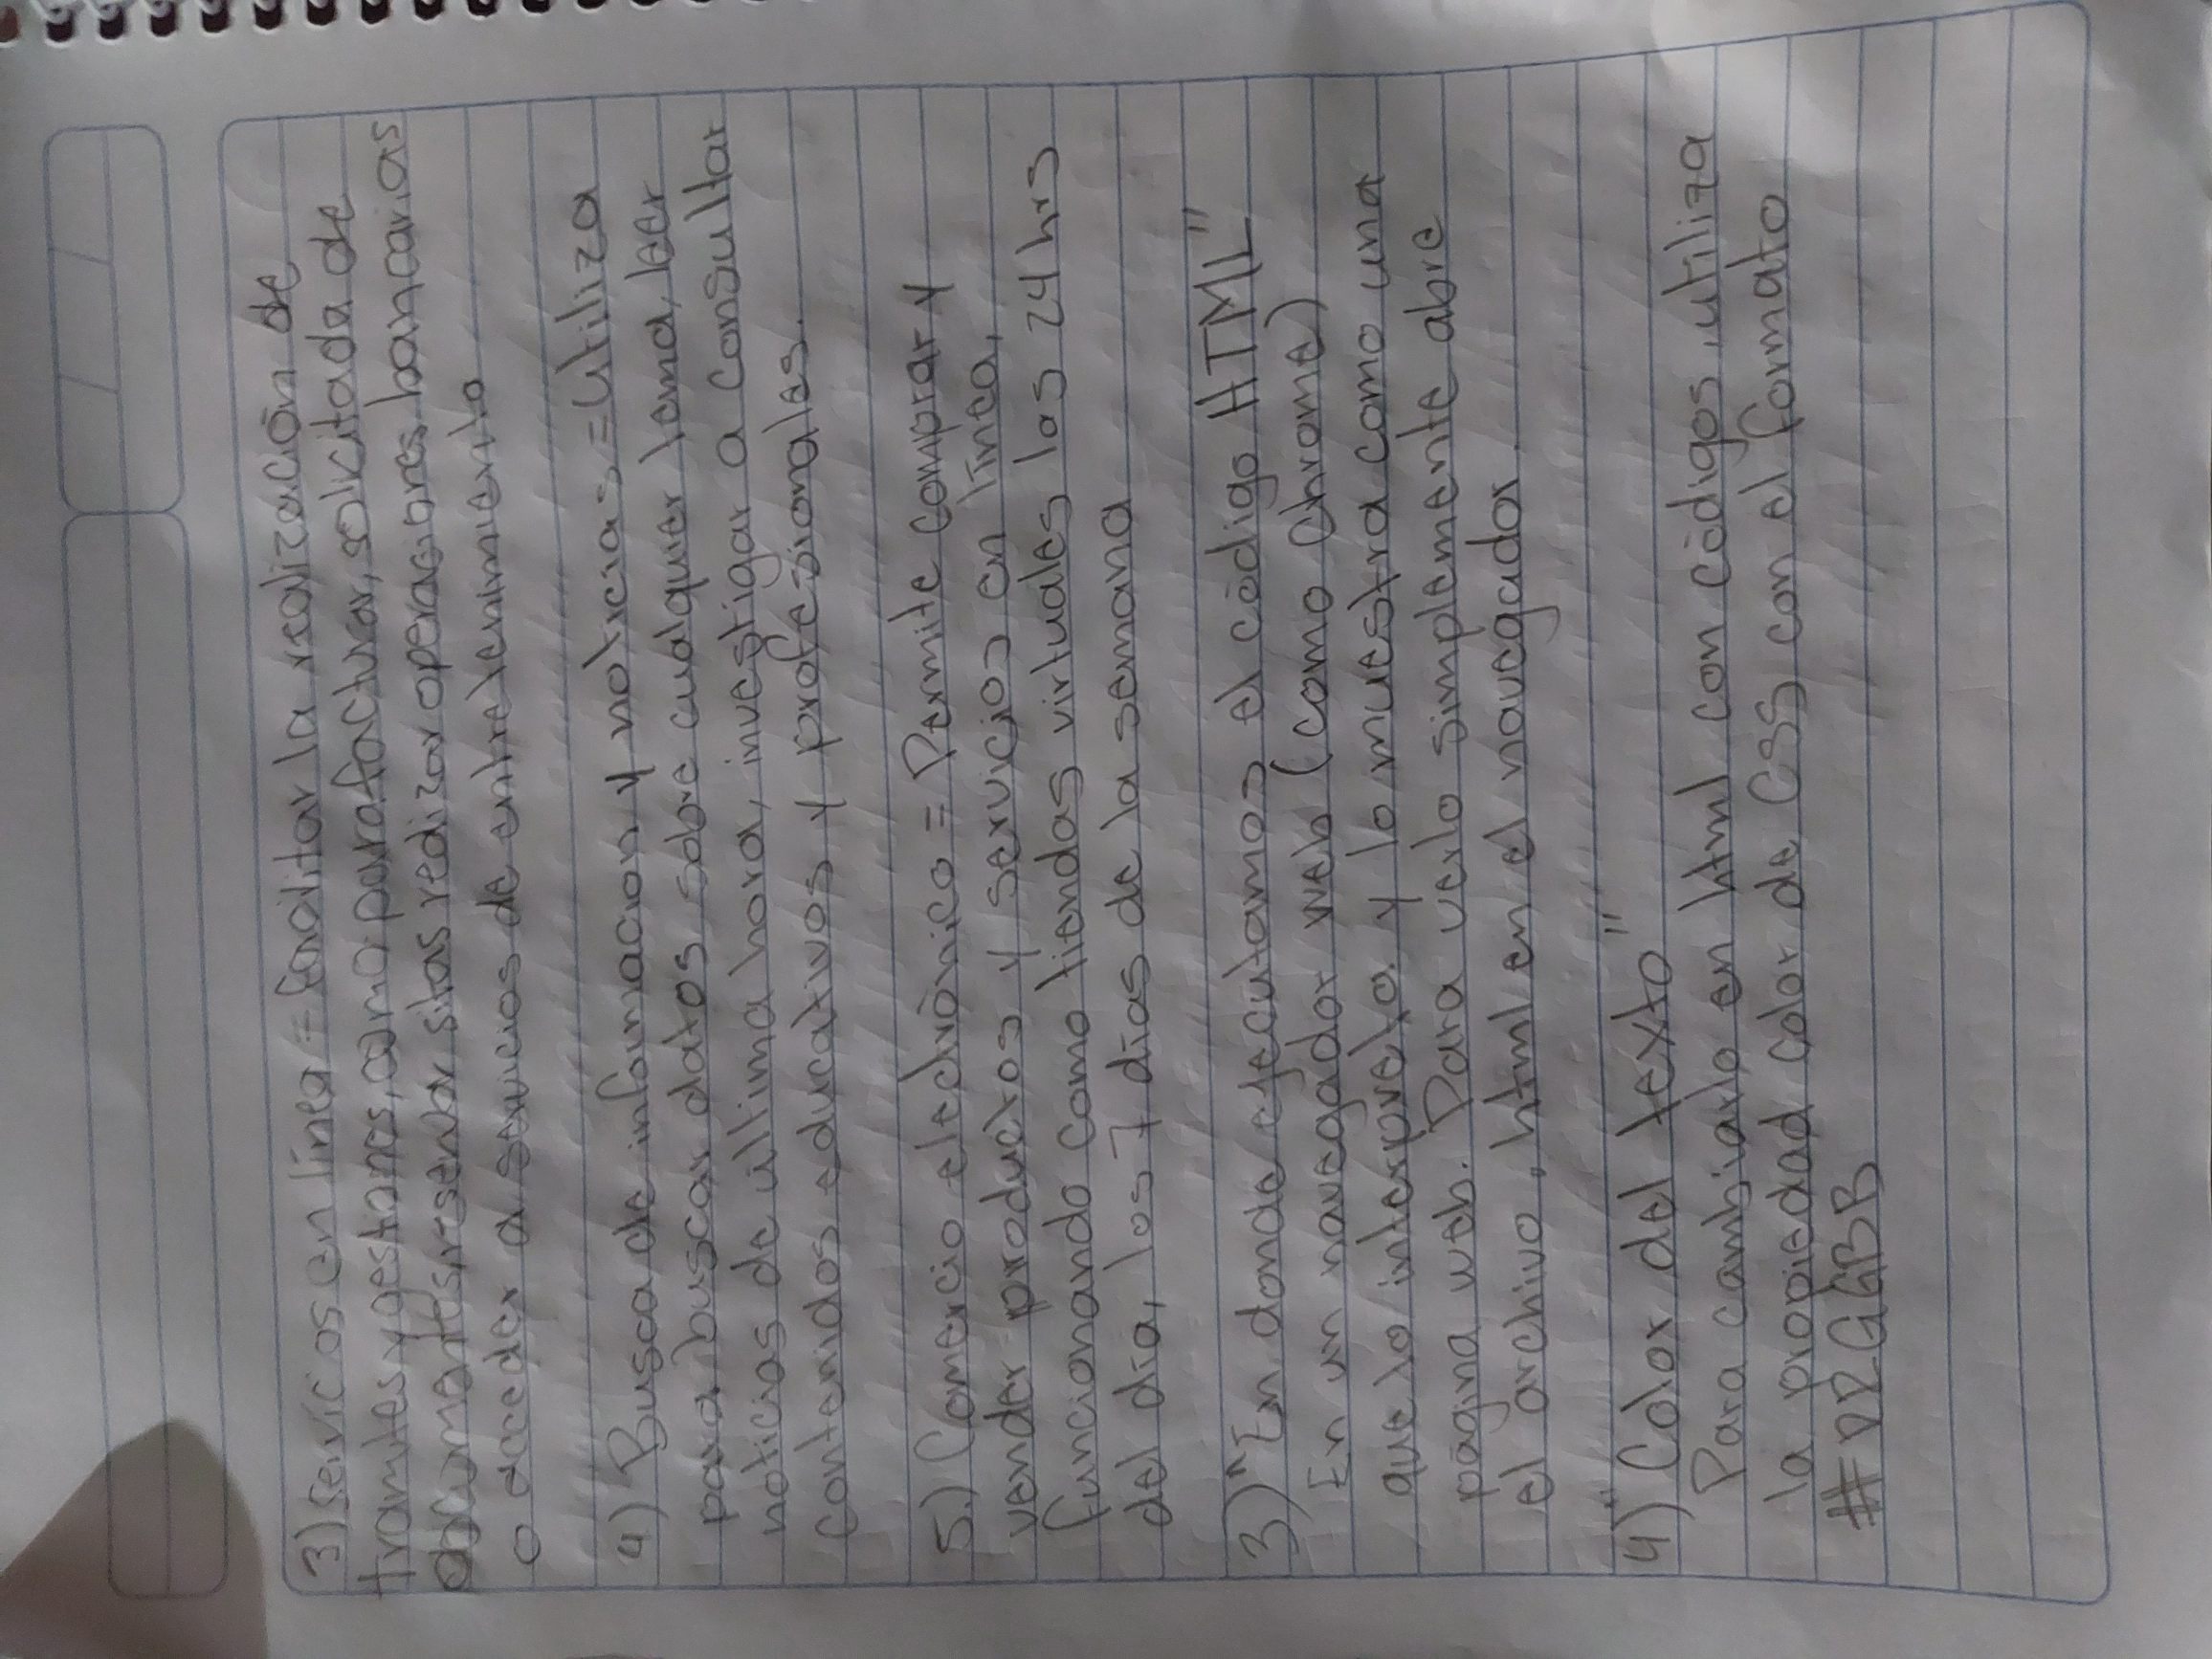 3) Servicios en línea = facilitar la realización de
tramites y gestiones, como para facturar, solicitada de
documentos, resenvar sitas redizar operaciones bancarias
o acceder a servicios de entretenimiento
4) Busca de informacion y noticias = Utiliza
para buscar datos sobre cualquier tema, leer
noticias de última hora, investigar a consultar
contenidos educativos y profesionales.
5.) Comercio electrónico = Permite comprar y
vender productos y servicios en línea,
funcionando como tiendas virtuales las 24 hrs
del día, los 7 días de la semana
3) "En donde ejecutamos el código HTML"
En un navegador web (como Chrome)
que lo interpreta y lo muestra como una
página web. Para verlo simplemente abre
el archivo .html en el navegador.
4) "Color del texto"
Para cambiarlo en html con códigos, utiliza
la propiedad color de CSS con el formato
#RRGGBB